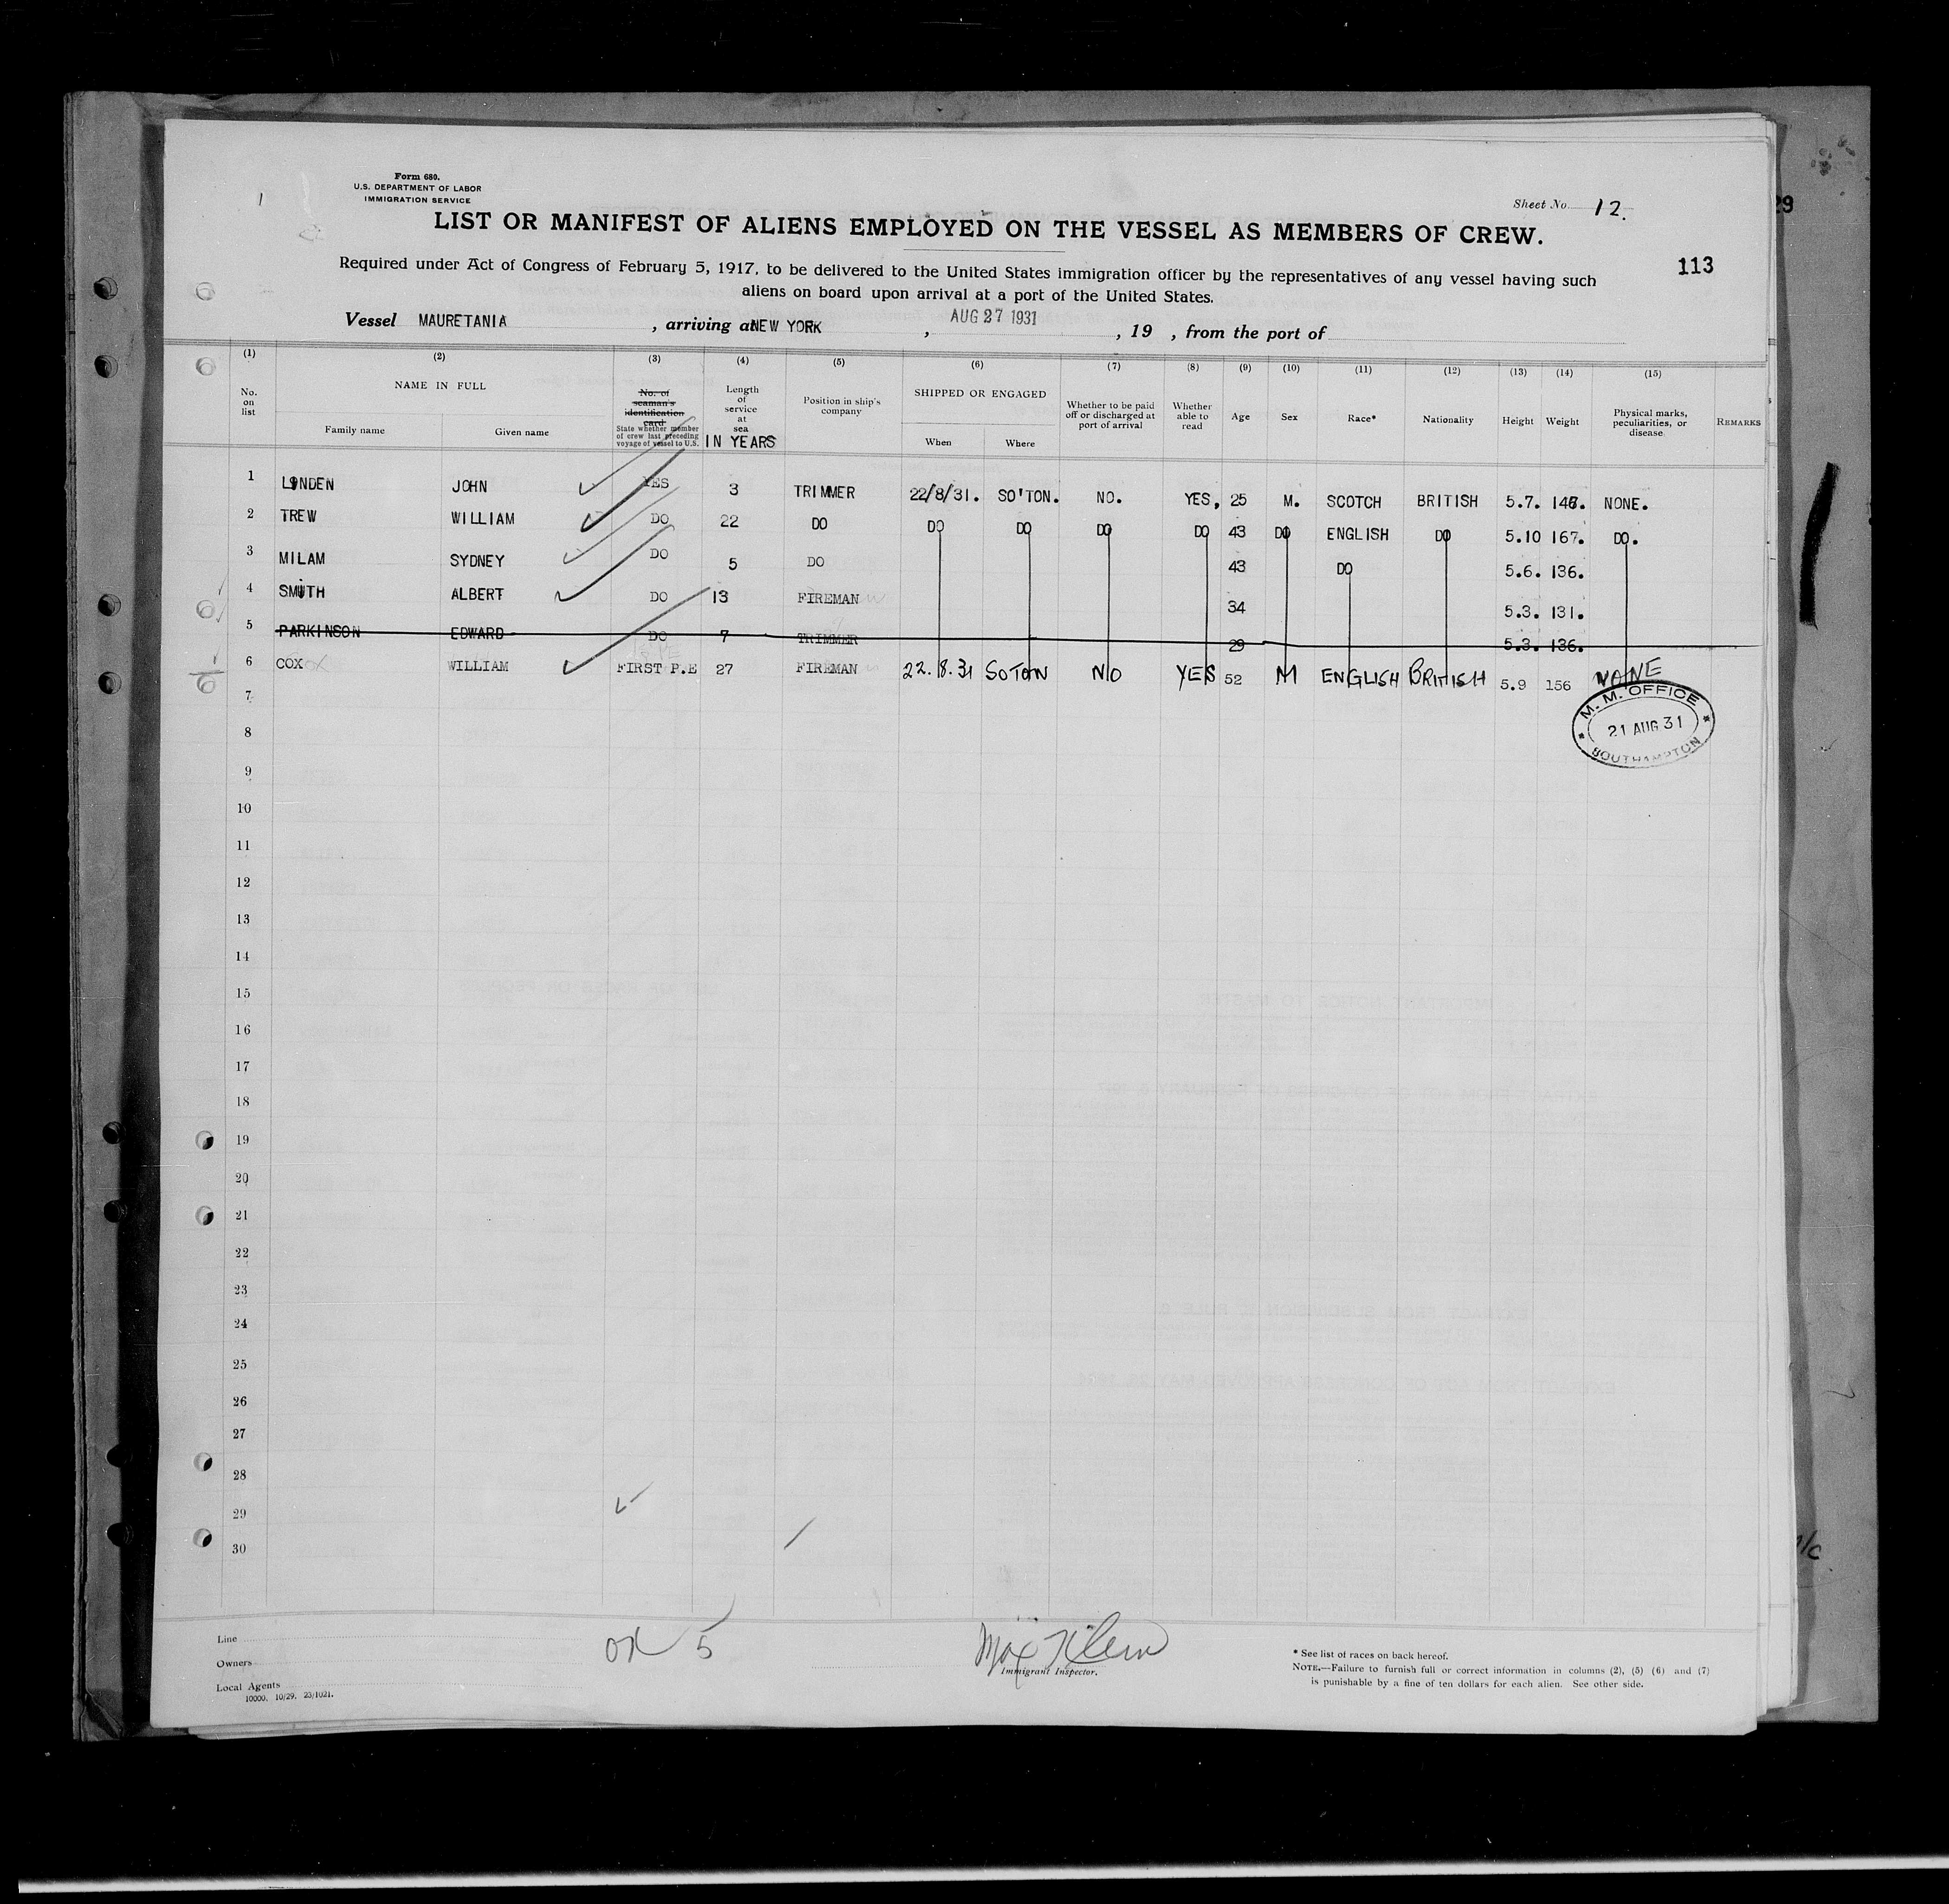 Form 680.
U.S. DEPARTMENT OF LABOR
IMMIGRATION SERVICE
Sheet No. 12.
LIST OR MANIFEST OF ALIENS EMPLOYED ON THE VESSEL AS MEMBERS OF CREW.
113
Required under Act of Congress of February 5, 1917, to be delivered to the United States immigration officer by the representatives of any vessel having such
aliens on board upon arrival at a port of the United States.
Vessel MAURETANIA, arriving at NEW YORK, AUG 27 1931, 19 , from the port of
(1) (2) (3) (4) (5) (6) (7) (8) (9) (10) (11) (12) (13) (14) (15)
No. on list
NAME IN FULL
Family name Given name
No. of seaman's identification card
State whether member of crew last preceding voyage of vessel to U.S.
Length of service at sea
IN YEARS
Position in ship's company
SHIPPED OR ENGAGED
When Where
Whether to be paid off or discharged at port of arrival
Whether able to read
Age Sex Race* Nationality Height Weight
Physical marks, peculiarities, or disease
REMARKS
1 JOHN YES 3 TRIMMER 22/8/31. SO'TON. NO. YES, 25 M. SCOTCH BRITISH 5.7. NONE.
2 TREW WILLIAM DO 22 DO DO DO DO DO 43 DO ENGLISH DO 5.10 167. DO.
3 MILAM SYDNEY DO 5 DO 43 DO 5.6. 136.
4 SMITH ALBERT DO 13 FIREMAN 34 5.3. 131.
5 PARKINSON EDWARD DO 7 TRIMMER 29 5.3. 136.
6 COX WILLIAM FIRST P.E 27 FIREMAN 22.8.31 SOTON NO YES 52 M ENGLISH BRITISH 5.9 156 NONE
M. M. OFFICE
21 AUG 31
SOUTHAMPTON
7
8
9
10
11
12
13
14
15
16
17
18
19
20
21
22
23
24
25
26
27
28
29
30
Line
Owners
Local Agents
10000. 10/29. 23/1021.
OK 5
Max Klein
Immigrant Inspector.
* See list of races on back hereof.
NOTE.—Failure to furnish full or correct information in columns (2), (5) (6) and (7)
is punishable by a fine of ten dollars for each alien. See other side.